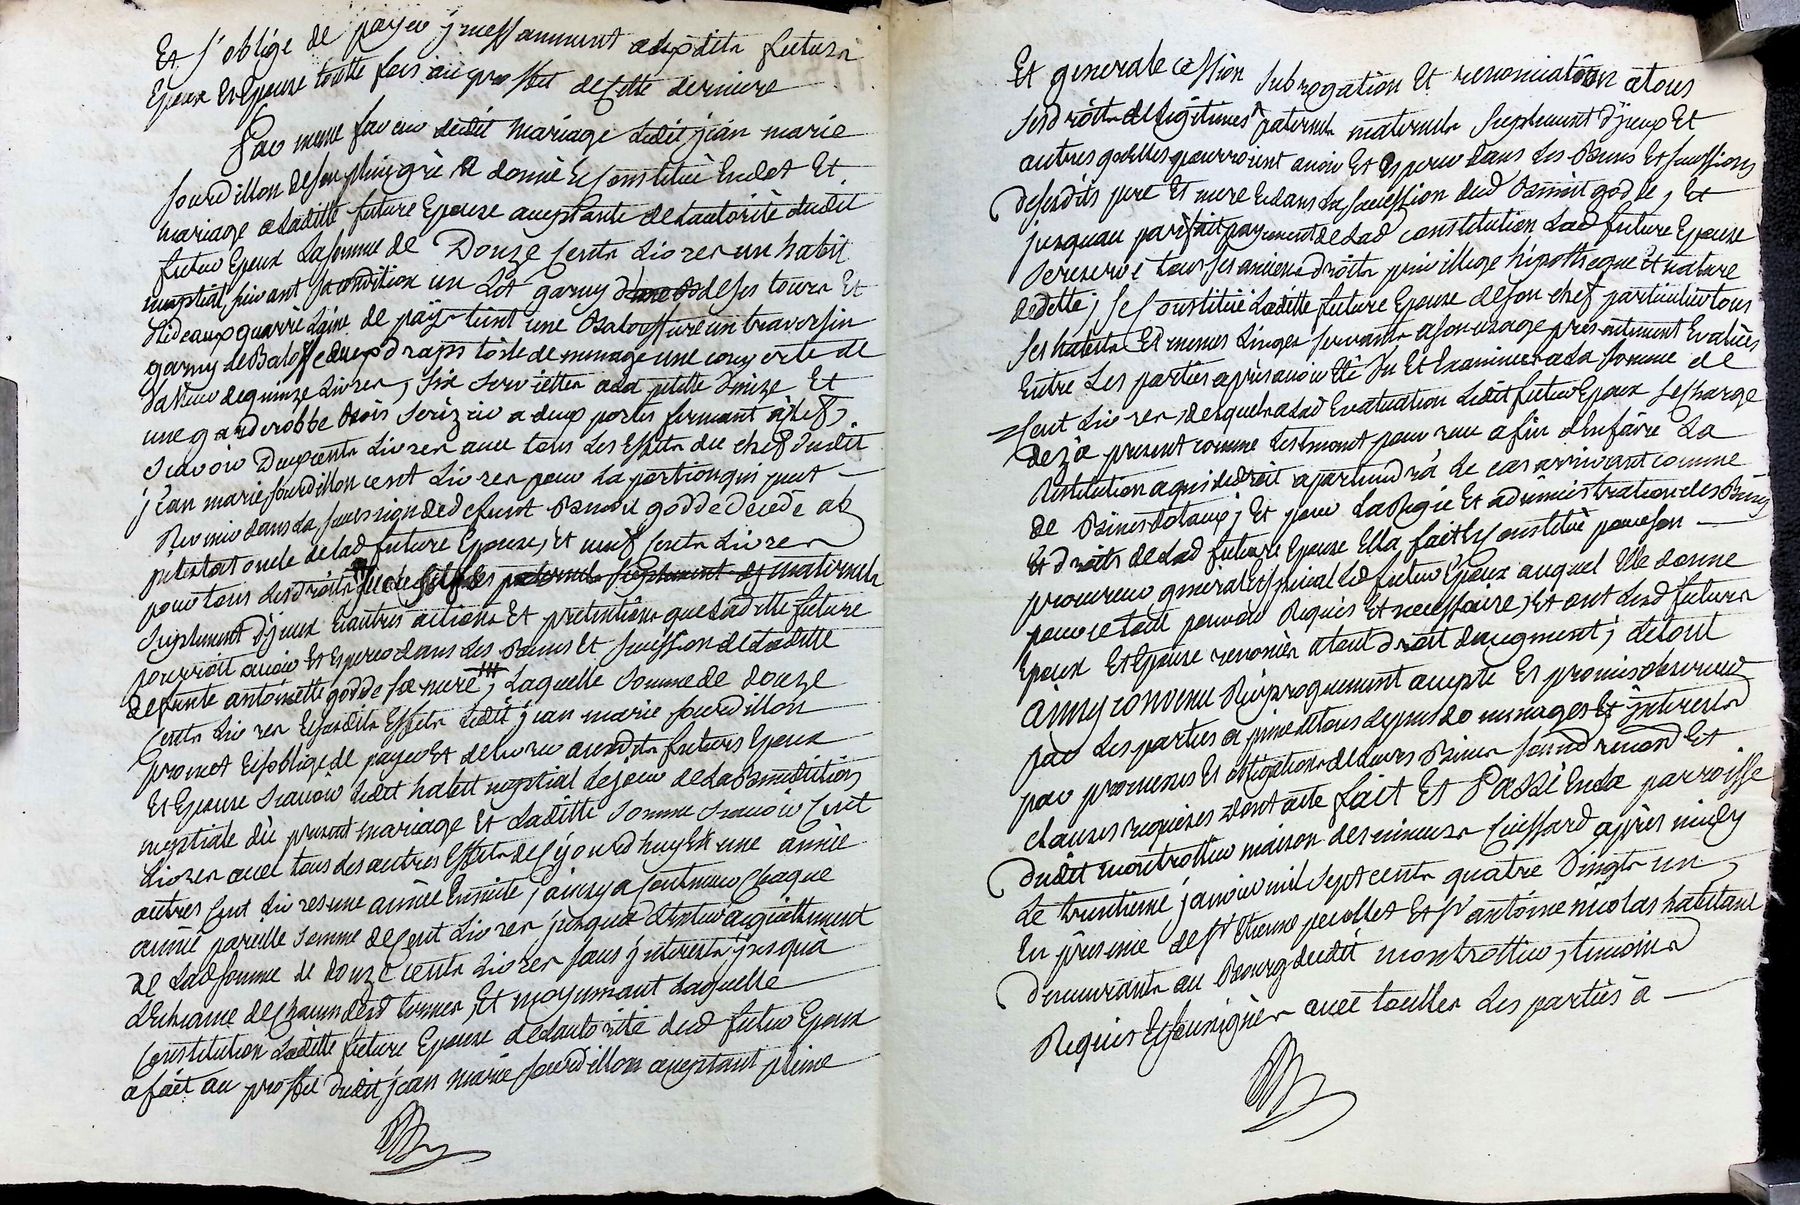 Et s'oblige de payer jncessamment auxdits futurs
Epoux Et Epouse toutte fois au proffit de Cette derniere
Par meme faveur dudit mariage Ledit jean marie
fourdillon de son plein gré a donné Et Constitué En dot Et
mariage a Laditte future Epouse acceptante de L'autorité dudit
futur Epoux La somme de Douze Cents Livres un habit
nuptial suivant sa condition un Lit garny de ses tours Et
Rideaux quarré Laine de païs teint une Baloffiere un traversin
garny de Baloffe deux draps toile de menage une couverte de
Valleur de quinze Livres, six serviettes a La petite Venize Et
une garderobbe Bois Serizier a deux portes fermant à clef,
Scavoir Deux cents Livres avec tous Les Effets du chef dudit
jean marie fourdillon cent Livres pour La portion qui peut
Revenir dans La succession de defunt Benoit godde decedé ab
intestat oncle de Lad future Epouse, Et neuf Cents Livres
pour tous Les droits maternels
Suplement d'jceux Et autres actions Et pretentions que Laditte future
pourroit avoir Et Esperer dans Les Biens Et succession de Laditte
defunte antoinette godde sa mere, Laquelle Somme de douze
Cents Livres Et susdits Effets Ledit jean marie fourdillon
promet Et s'oblige de payer Et delivrer auxdits futurs Epoux
Et Epouse Scavoir Ledit habit nuptial Le jour de La Benediction
nuptiale du present mariage Et Laditte Somme Scavoir Cent
Livres avec tous Les autres Effets de Cejourd'huy En une année
autres Cent Livres une année Ensuite, ainsy a Continuer Chaque
année pareille Somme de Cent Livres jusqu'a L'entier aquittement
de Lad somme de douze cents Livres sans jnterests jusquà
L'Echeance de Chacun desd termes, Et moyennant Laquelle
Constitution Laditte future Epouse de L'autorité dud futur Epoux
a fait au proffit dudit jean marie fourdillon acceptant pleine
Et generale cession subrogation Et renonciation a tous
Ses droits de Legitimes paternels maternels Suplement d'jceux Et
autres quelles pourroient avoir Et Esperer dans Les Biens Et successions
desesdits pere Et mere Et dans La succession dud Benoit godde, Et
jusquau parfait payement de Lad constitution Lad future Epouse
Se reserve tous ses anciens droits privillege hipotheque Et nature
de dette; Se Constitue Laditte future Epouse de son chef particulier tous
Ses habits Et menus Linges servants a son usage présentement Evalués
Entre Les parties après avoir Eté Vu Et Examinés a La Somme de
Cent Livres, desquels a Lad Evaluation Ledit futur Epoux Se charge
dez à present comme Les tenant pour reçu afin d'En faire La
Restitution a qui de droit apartiendrà Le cas arrivant comme
de Biens dotaux; Et pour La Regie Et administration des Biens
Et droits de Lad future Epouse Ella fait Et Constitué pour son
procureur general Et special Led futur Epoux auquel Elle donne
pour ce tout pouvoir Requis Et necessaire, Et ont Lesd futurs
Epoux Et Epouse renoncés a tout droit d'augment; Le tout
ainsy convenu Reciproquement accepté Et promis observer
par Les parties a peine de tous depens domages Et jnterests
par promesses Et obligations de Leurs Biens Soumd renond Et
clauses requises dont acte fait Et Passé En La parroisse
dudit montrottier maison des mineurs Cuissard après midy
Le trentieme janvier mil sept cents quatre Vingts un,
En présence de sr Etienne pecollet Et sr antoine nicolas habitant
demeurants au Bourg dudit montrottier, temoins
Requis Et Soussignés avec touttes Les parties à